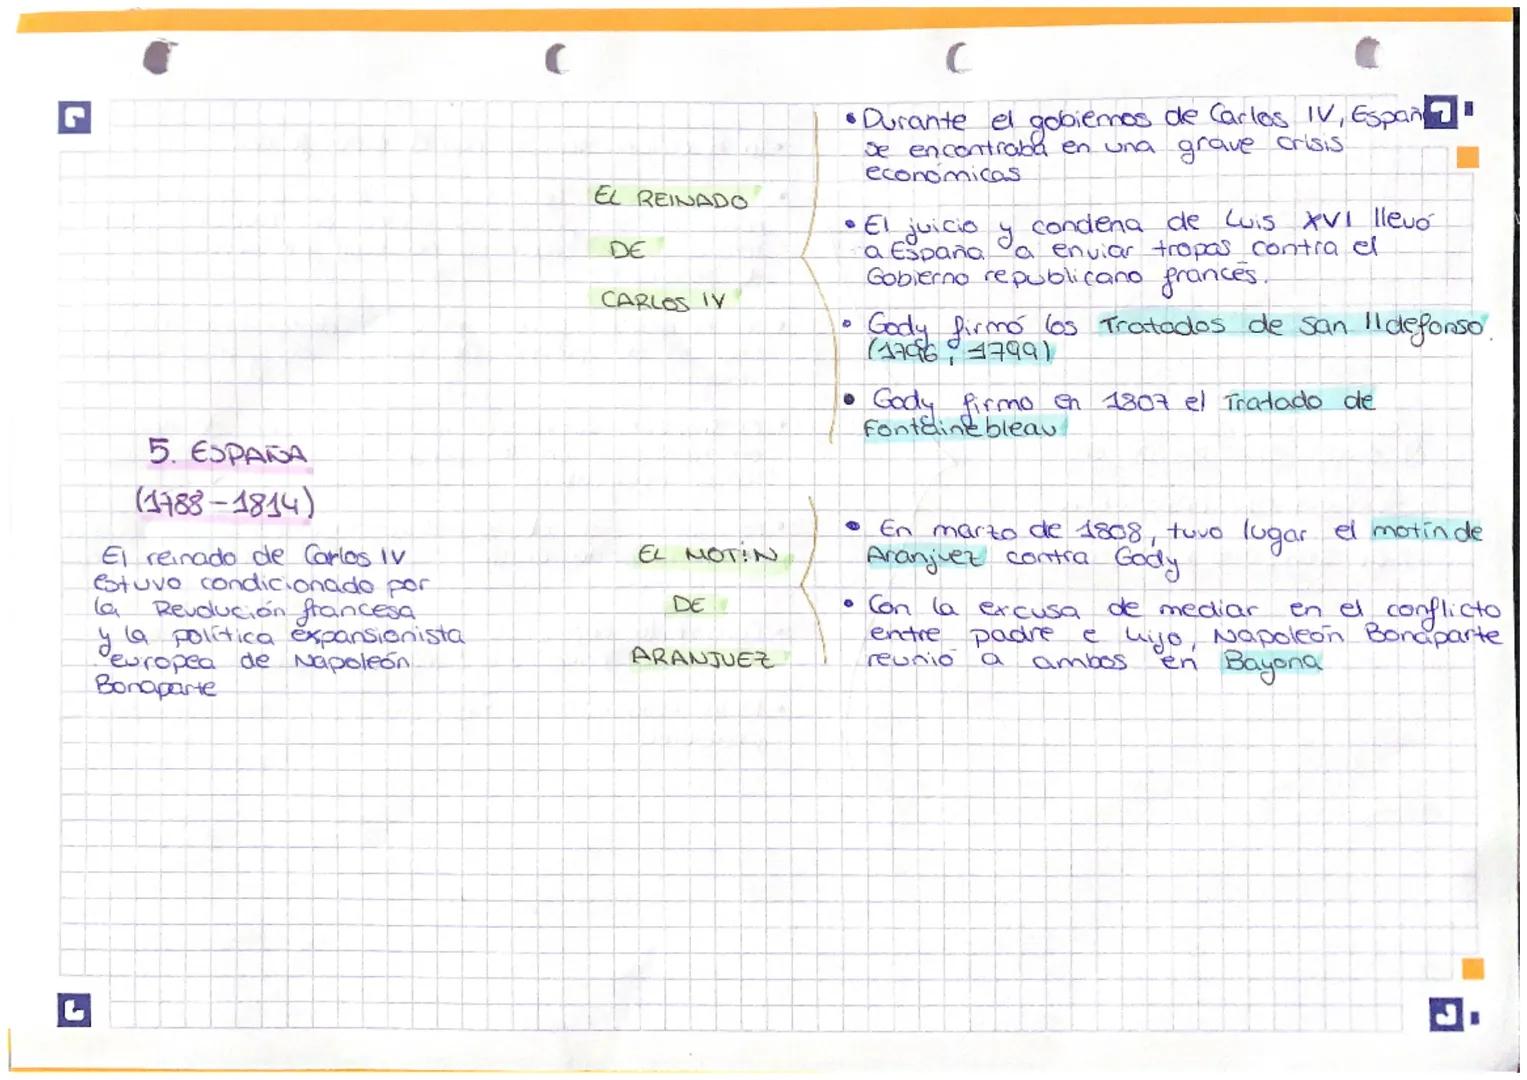 5. ESPAÑA
(1788-1814)
El reinado de Carlos IV
estuvo condicionado por
la Revolución francesa
y la política expansionista
europea de Napoleón
Bonaparte
EL REINADO
DE
CARLOS IV
• Durante el gobiernos de Carlos IV, Españ
se encontraba en una grave crisis
económicas
• El juicio y condena de Luis XVI llevó
a España a enviar tropas contra el
Gobierno republicano francés.
• Gody firmó los Tratados de San Ildefonso.
(1796, 1799)
• Gody firmo en 1807 el Tratado de
Fontainebleau
EL MOTIN
DE
ARANJUEZ
• En marzo de 1808, tuvo lugar el motín de
Aranjuez contra Gody
• Con la excusa de mediar en el conflicto
entre padre e hijo, Napoleón Bonaparte
reunió a ambos en Bayona